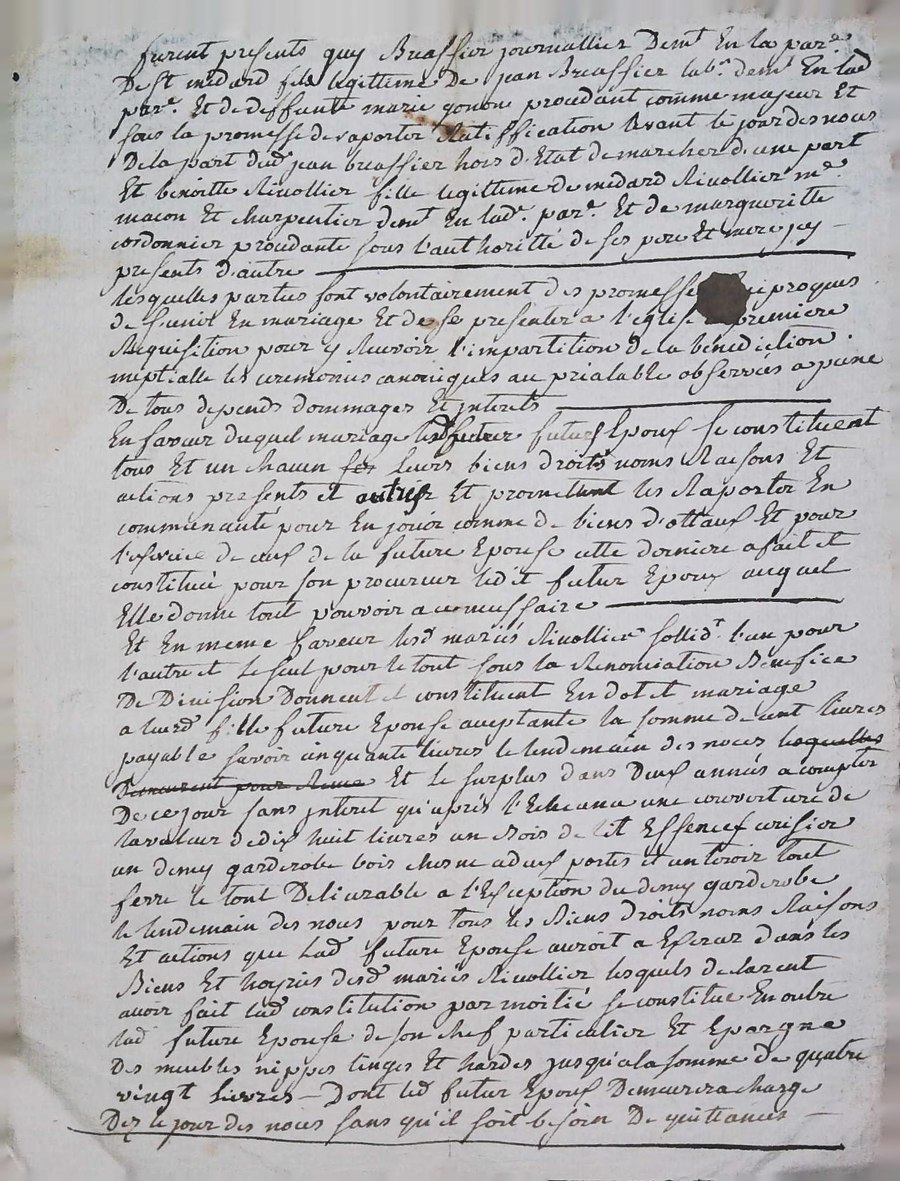 furent presents guy Brassier journallier Demt En la pare
De st medard fils legittime De jean Brassier labr demt En lad
pare. Et de deffunte marie gonon procedant comme majeur Et
sous la promesse de raporter Ratiffication avant le jour des nous
De la part dud jean brassier hors d'Etat de marcher d'une part
Et benoitte Rivollier fille legittime de medard Rivollier me
macon Et charpentier demt En lade. pare. Et de marguerite
cordonnier procedante sous l'authoritté de ses pere Et mere jcy
presents d'autre
lesquelles parties font volontairement des promesse iproques
de s'unir En mariage Et de se presenter a l'eglise premiere
Requisition pour y Recevoir l'impartition de la bénédiction
nuptialle les ceremonies canoniques au prealable observées a peine
De tous depends dommages Et jnterets
En faveur duquel mariage futurs Epoux se constituent
tous Et un chacun leurs biens droits noms Raisons Et
actions presents et Et promettent les Raporter En
communauté pour En jouir comme de biens dottaux Et pour
l'exercice de ceux de la future Epouse cette derniere a fait et
constitué pour son procureur led't futur Epoux auquel
Elle donne tout pouvoir a ce necessaire
Et En meme faveur lesd mariés Rivollier sollidt l'un pour
l'autre et le seul pour le tout sous la Renonciation Benefice
De Division Donnent et constituent En dot et mariage
a leurd fille future Epouse acceptante la somme de cent livres
payable savoir cinquante livres le lendemain des noces lesquelles
Et le surplus dans Deux années a compter
De ce jour sans jnteret qu'après l'Echeance une couverture de
la valeur de dix huit livres un Bois de lit Essence cerisier
un demy garderobe bois chesne a deux portes et un tiroir tout
ferré le tout Delivrable a l'Exception du demy garderobe
le lendemain des nous pour tous les Biens droits noms Raisons
Et actions que lad future Epouse auroit a Exercer dans les
Biens Et hoyries desd mariés Rivollier lesquels declarent
avoir fait lad constitution par moitié se constitue En outre
lad future Epouse de son chef particulier Et Epargne
Des meubles nippes linges Et hardes jusqu'a la somme de quatre
vingt Livres - Dont led futur Epoux Demeurera chargé
Dez le jour des nous sans qu'il soit besoin De quittances